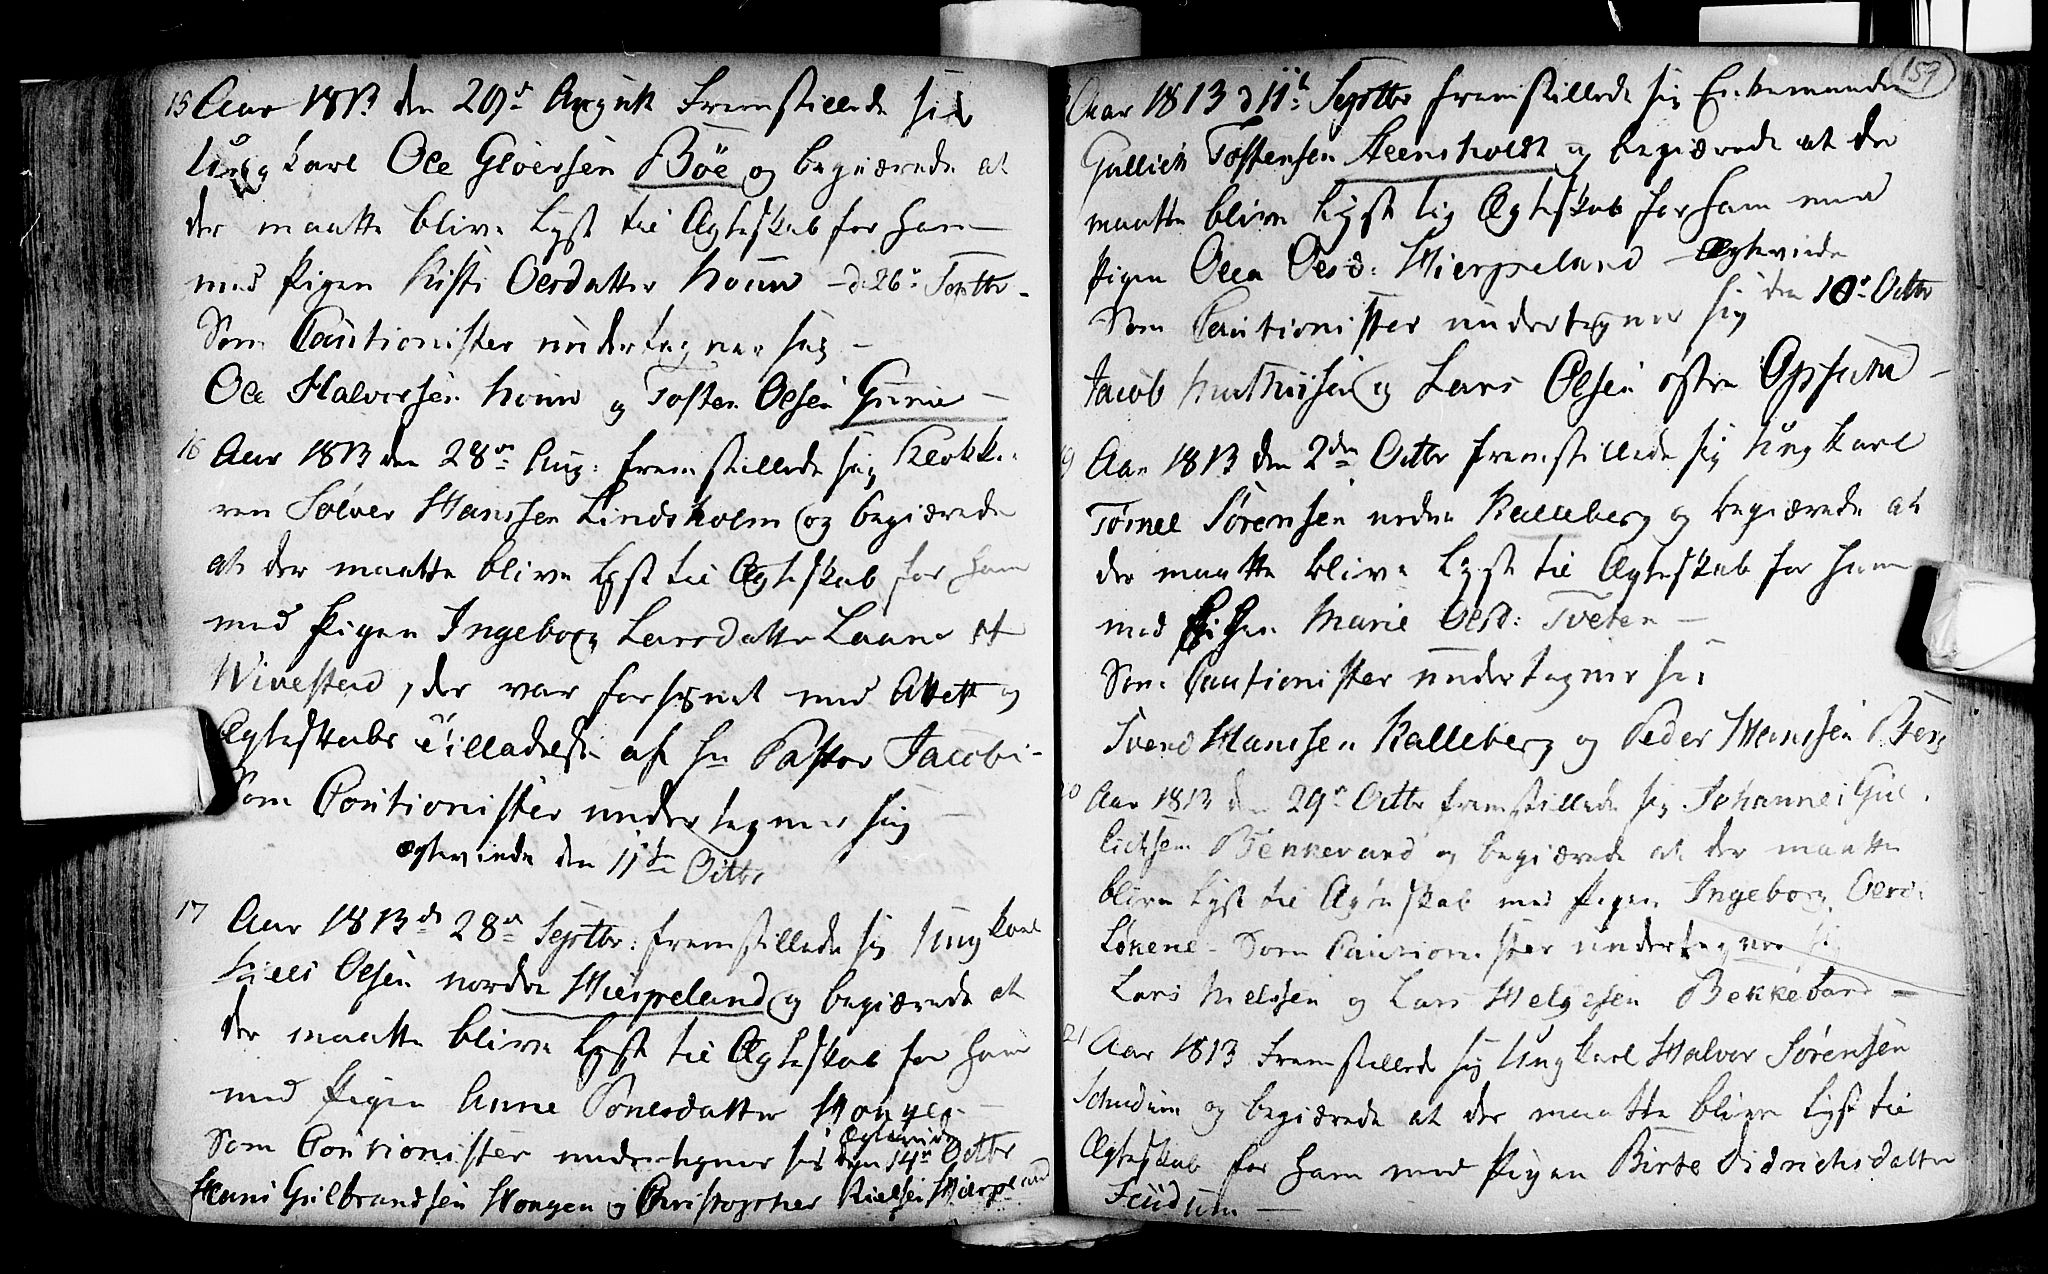 15 Aar 1813 den 29de August Fremstillede sig
Ung karl Ole Gloersen Böe og begiærede at
der maatte blive Lyst til Ægteskab for ham
med Pigen Kisti Olesdatter houw - d. 26de Septbr -
Som Cautionister undertegner sig -
Ole Halvorsen houw og Tosten Olsen Gurie -
16 Aar 1813 den 28de Aug: fremstillede sig Klokke-
ren Sölver Hanssen Lindsholm og begiærede
at der maatte blive Lyst til Ægteskab for ham
med Pigen Ingeborg Larsdatter Laane
Winestad, der var forsynet med Attest og
Ægteskabs Tilladelse af Hr Pastor Jacobi -
Som Coutionister undertegner sig -
ægteviede den 11te Octbr
17 Aar 1813 d. 28de Septbr: fremstillede sig Ung karl
Niels Olsen nordre Hierpeland og begiærede at
der maatte blive Lyst til Ægteskab for ham
med Pigen Anne Tonesdatter Hongen -
Som Coutionister undertegner sig Ægteviede den 14de Octbr
Hans Gulbrandsen Hongen og Christopher Nielsen Hierpeland
159
Aar 1813 d 11te Septbr fremstillede sig Enkemanden
Gullich Tostensen Steensholdt og begiærede at der
maatte blive Lyst til Ægteskab for ham med
Pigen Olea Olesd: Hierpeland - Ægteviede
Som Cautionister undertegner sig den 10de Octbr
Jacob Mathisen og Lars Olsen østre Opsund -
19 Aar 1813 den 2den Octbr fremstillede sig Ung karl
Tormel Sörensen nedre Kalleberg og begiærede at
der maatte blive Lyst til Ægteskab for ham
med Pigen Marie Olesd: Tveten -
Som Cautionister undertegner sig
Svend Hanssen Kalleberg og Peder Hanssen Berg
20 Aar 1813 den 29de Octbr fremstillede sig Johannes Gul-
lichsen Bekkevard og begiærede at der maatte
blive Lyst til Ægteskab med Pigen Ingeborg Olesd:
Lökene - Som Cautionister undertegner sig
Lars Nielssen og Lars Helgesen Bekkevard -
21 Aar 1813 Fremstillede sig Ung karl Halvor Sörensen
Schudum og begiærede at der maatte blive Lyst til
Ægteskab for ham med Pigen Birte Didrichsdatter
Feudum -